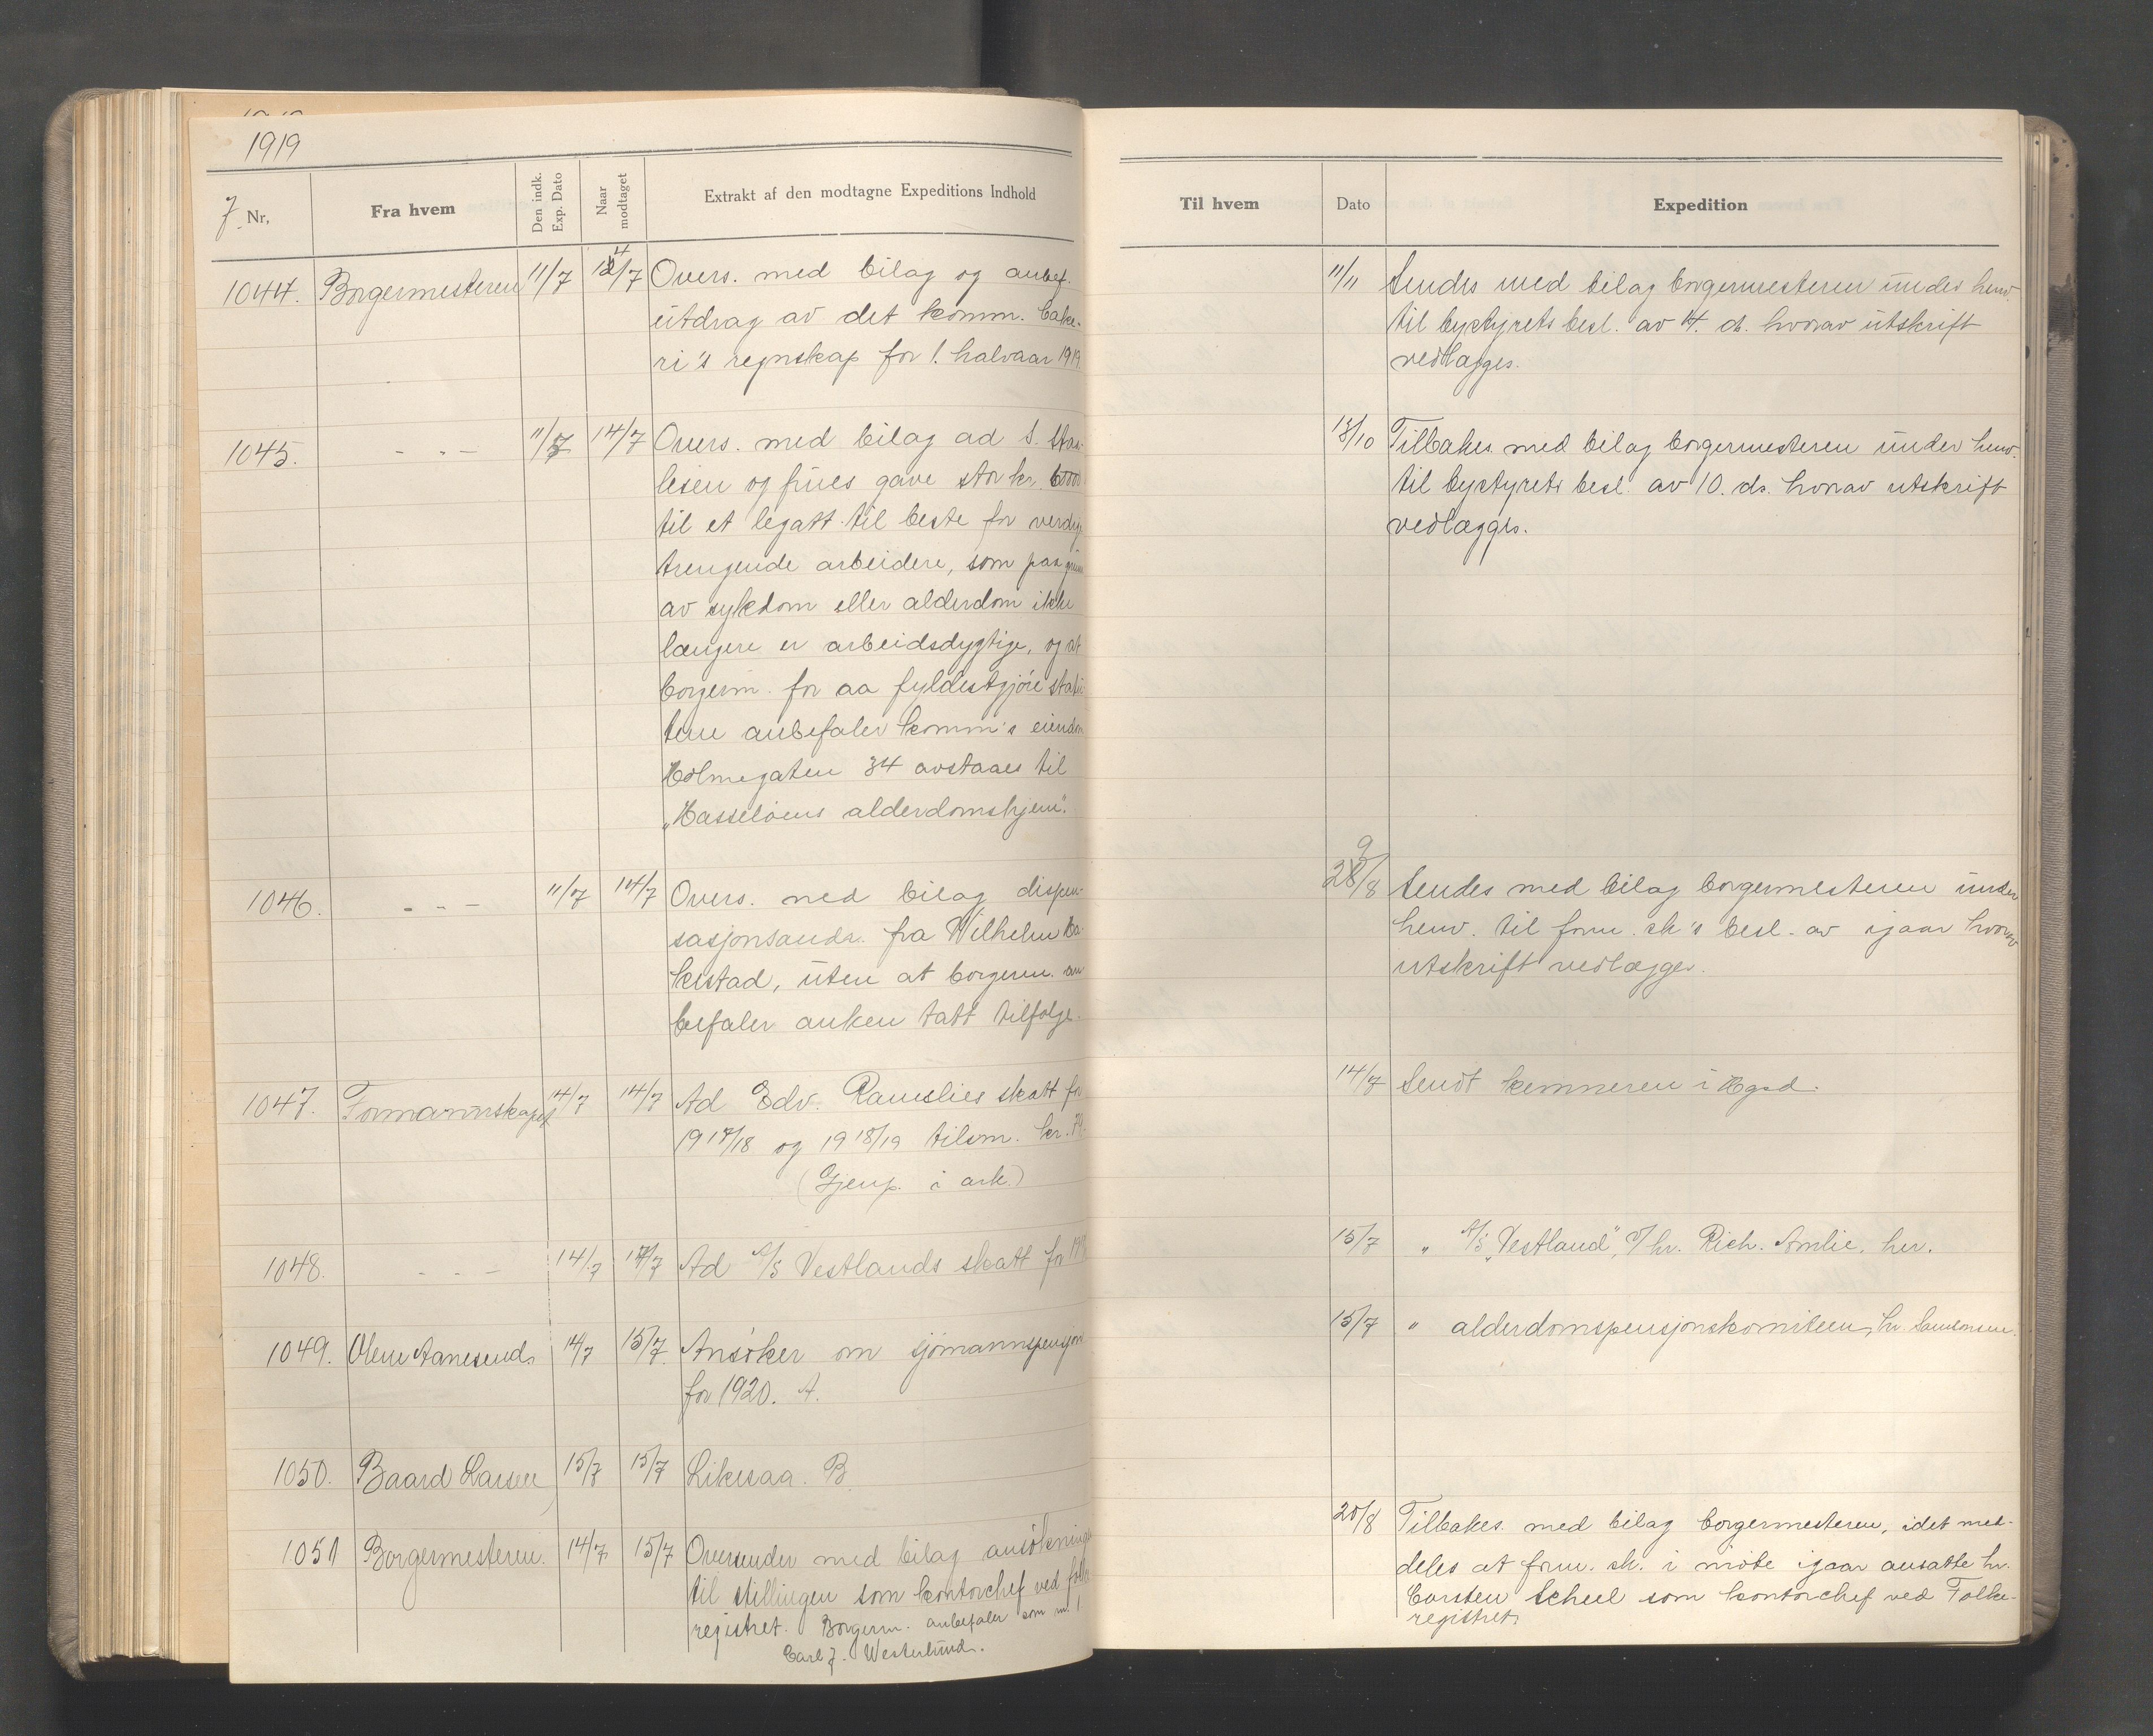 1919
J. Nr,
Fra hvem
Den indk. Exp. Dato
Naar modtaget
Extrakt af den modtagne Expeditions Indhold
1044. Borgermesteren 11/7 14/7 Overs. med bilag og anbef.
utdrag av det komm. bake-
ri's regnskap for 1. halvaar 1919.
1045. - " - 11/7 14/7 Overs. med bilag ad S.
og frues gave stor kr.
til et legatt til beste for verdig
trengende arbeidere, som paa grun
av sykdom eller alderdom ikke
længere er arbeidsdygtige, og at
borgerm. for aa fyldestgjøre statu
tene anbefaler komm's eiendom
Holmegaten 34 avstaaes til
„Hasseløens alderdomshjem".
1046. - " - 11/7 14/7 Overs. med bilag dispen-
sasjonsandr. fra Wilhelm Ha-
kestad, uten at borgerm. an
befaler anken tatt tilfølge.
1047. Formannskapet 14/7 14/7 Ad Edv. Ramslies skatt for
1917/18 og 1918/19 tilsm. kr.
(Gjenp. i ark.)
1048. - " - 14/7 14/7 Ad A/S Vestlands skatt for
1049. Olene Aanesends 14/7 15/7 Ansøker om sjømannspensjon
for 1920. A.
1050. Baard Larsen 15/7 15/7 Likesaa. B.
1051 Borgermesteren. 14/7 15/7 Oversender med bilag ansøkninger
til stillingen som kontorchef ved folke
registret. Borgerm. anbefaler som nr. 1
Carl J. Westerlund.
Til hvem
Dato
Expedition
11/11 Sendes med bilag borgermesteren under henv.
til bystyrets besl. av 4. ds. hvorav utskrift
vedlægges.
13/10 Tilbakes. med bilag borgermesteren under henv.
til bystyrets besl. av 10. ds. hvorav utskrift
vedlægges.
29/8 Sendes med bilag borgermesteren under
henv. til form. sk's besl. av igaar hvorav
utskrift vedlægges.
14/7 Sendt kemneren i Hgsd.
15/7 " A/S „Vestland", v/hr. Rich. Amlie, her.
15/7 " alderdomspensjonskomiteen, hr. Samsonsen.
20/8 Tilbakes. med bilag borgermesteren, idet med-
deles at form. sk. i møte igaar ansatte hr.
Carsten Scheel som kontorchef ved Folke-
registret.